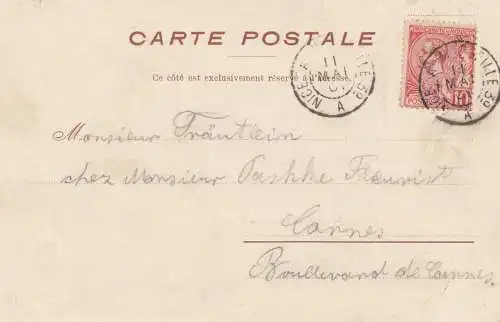 CARTE POSTALE
Ce côté est exclusivement réservé à l'adresse.
11
MAI
A
11
MAI
A
Monsieur Fräutlein
chez Monsieur Pashke Fleurist
Cannes
Boulevard de Cannes